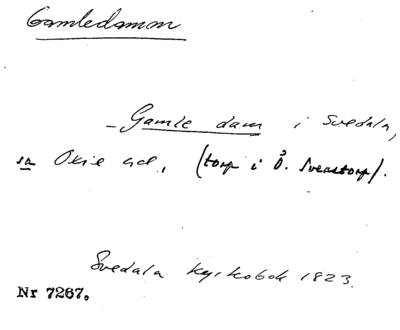 Gamledamm
– Gamle dam i Svedala,
sa Oxie hd, (torp i Ö. Svenstorp).
Svedala kyrkobok 1823.
Nr 7267.